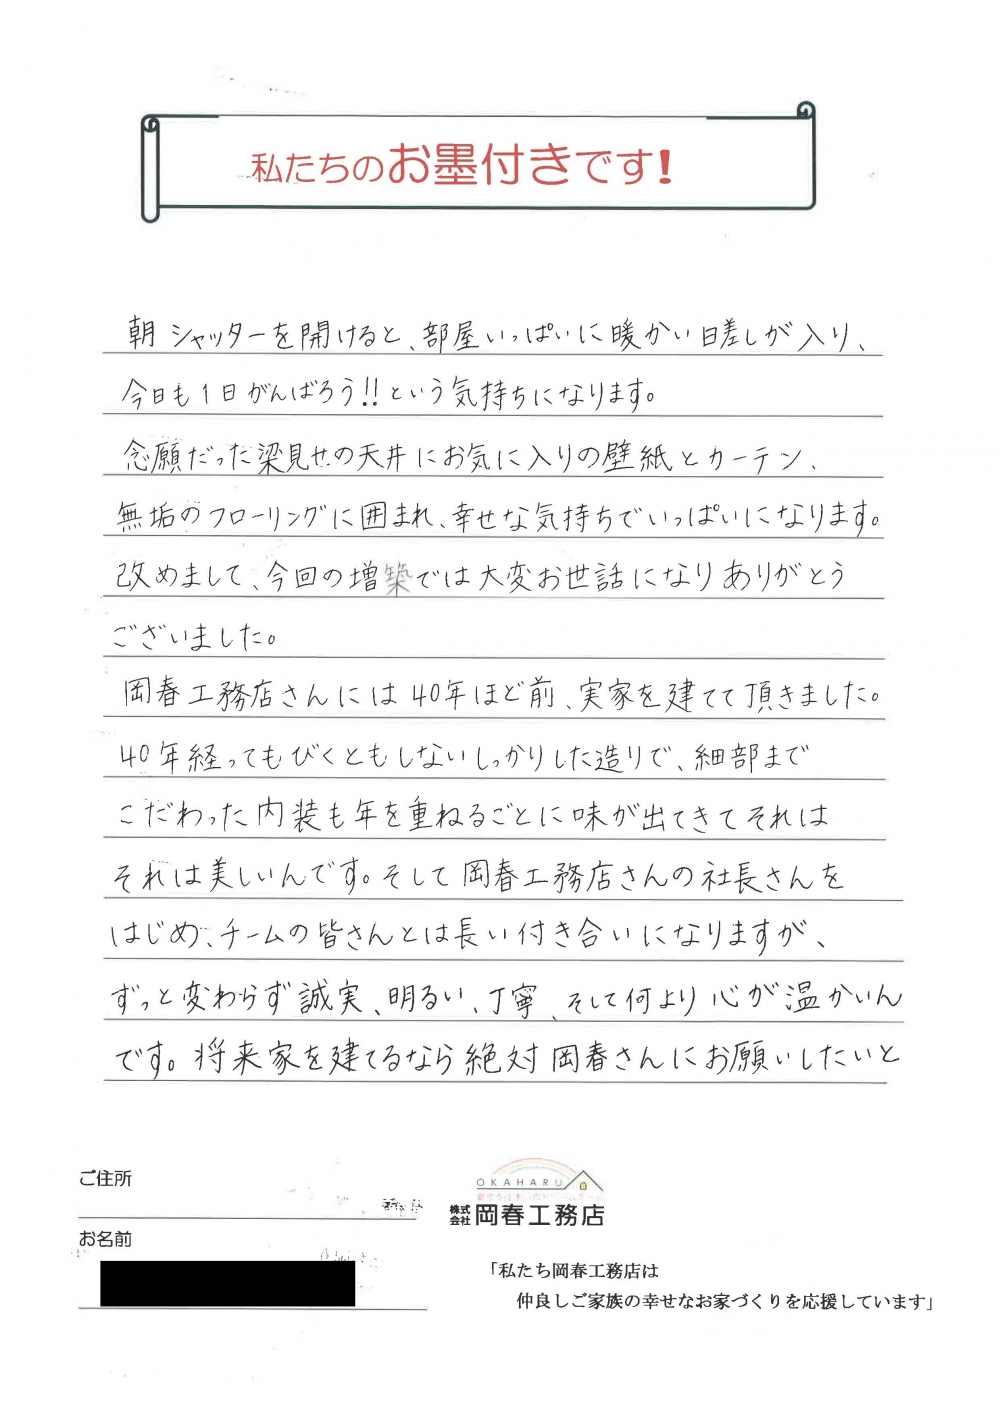 私たちのお墨付きです!
朝シャッターを開けると、部屋いっぱいに暖かい日差しが入り、
今日も1日がんばろう!!という気持ちになります。
念願だった梁見せの天井にお気に入りの壁紙とカーテン、
無垢のフローリングに囲まれ、幸せな気持ちでいっぱいになります。
改めまして、今回の増築では大変お世話になりありがとう
ございました。
岡春工務店さんには40年ほど前、実家を建てて頂きました。
40年経ってもびくともしないしっかりした造りで、細部まで
こだわった内装も年を重ねるごとに味が出てきてそれは
それは美しいんです。そして岡春工務店さんの社長さんを
はじめ、チームの皆さんとは長い付き合いになりますが、
ずっと変わらず誠実、明るい、丁寧、そして何より心が温かいん
です。将来家を建てるなら絶対岡春さんにお願いしたいと
ご住所
お名前
OKAHARU
株式会社 岡春工務店
「私たち岡春工務店は
仲良しご家族の幸せなお家づくりを応援しています」